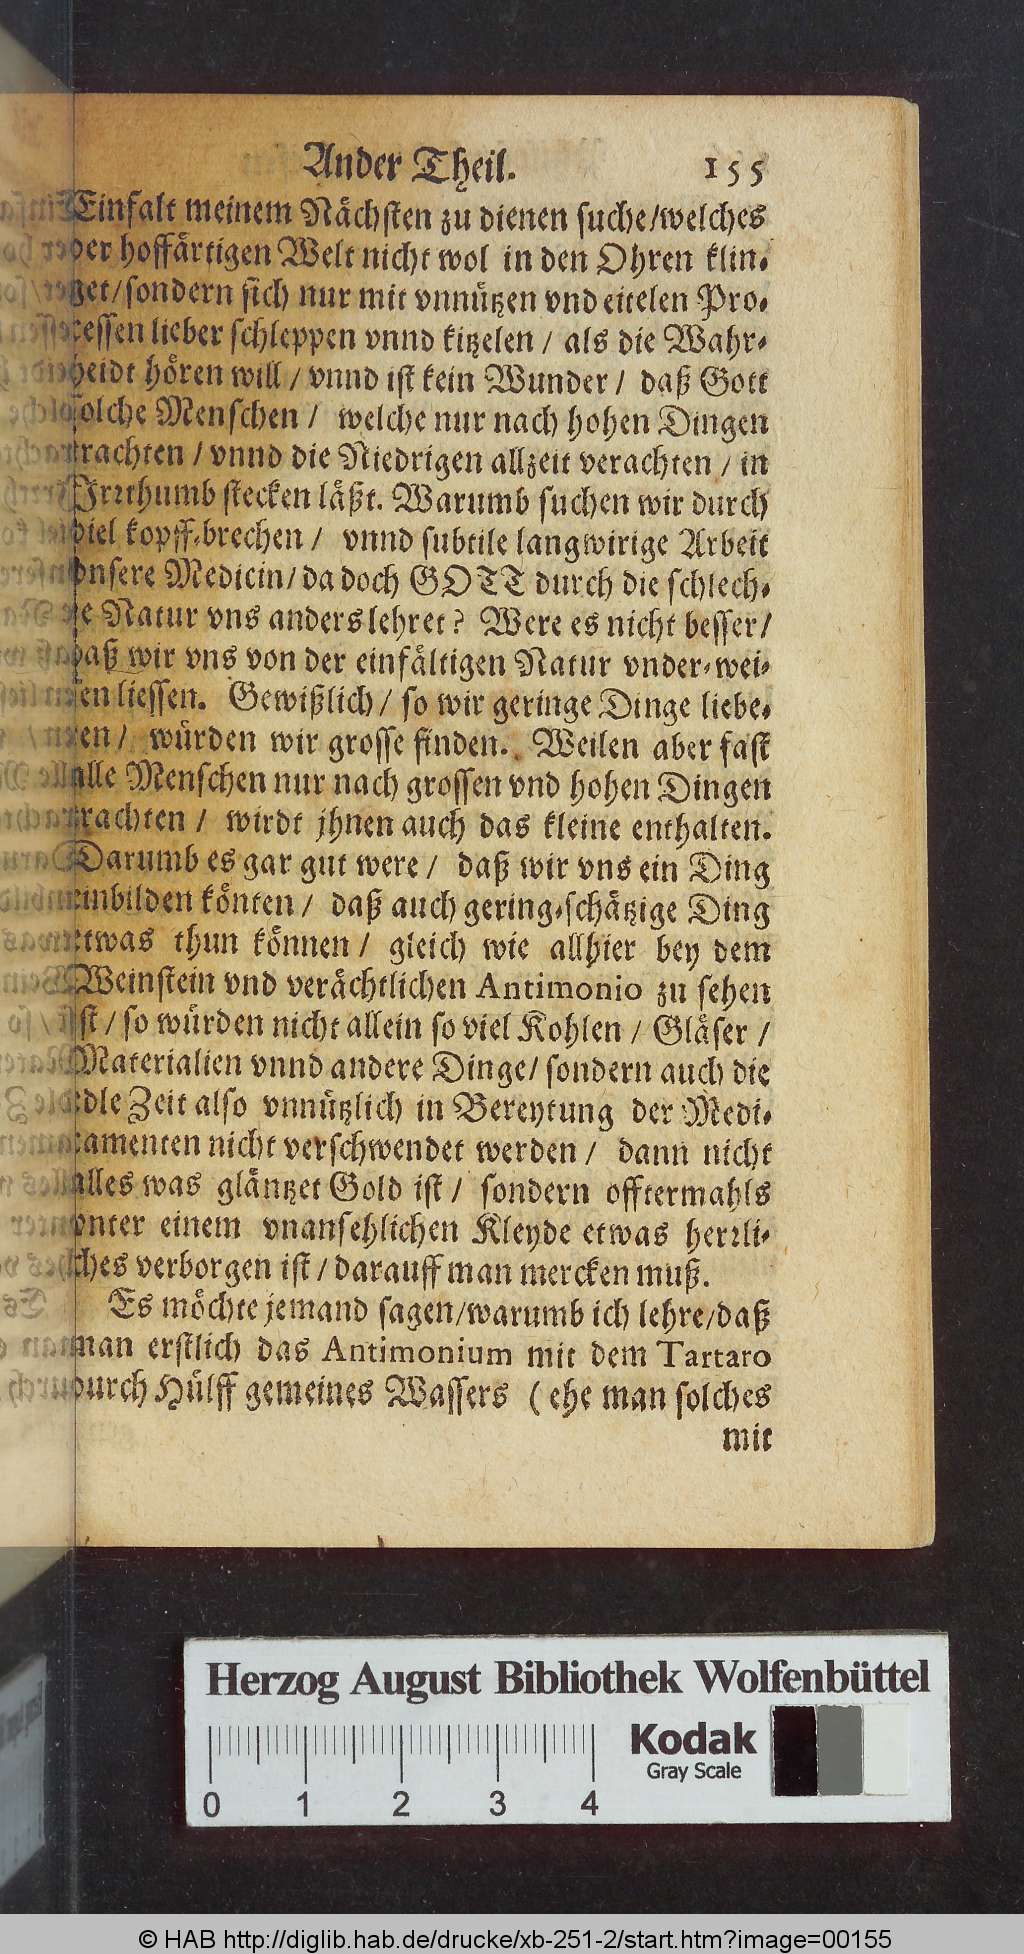 Ander Theil. 155
Einfalt meinem Nächsten zu dienen suche/welches
der hoffärtigen Welt nicht wol in den Ohren klin-
get/sondern sich nur mit vnnützen vnd eitelen Pro-
cessen lieber schleppen vnnd kitzelen / als die Wahr-
heidt hören will / vnnd ist kein Wunder / daß Gott
solche Menschen / welche nur nach hohen Dingen
trachten / vnnd die Niedrigen allzeit verachten / in
Irrthumb stecken läßt. Warumb suchen wir durch
viel kopff-brechen / vnnd subtile langwirige Arbeit
vnsere Medicin/ da doch GOTT durch die schlech-
te Natur vns anders lehret? Were es nicht besser/
daß wir vns von der einfältigen Natur vnder-wei-
sen liessen. Gewißlich / so wir geringe Dinge liebe-
ten / würden wir grosse finden. Weilen aber fast
alle Menschen nur nach grossen vnd hohen Dingen
trachten / wirdt jhnen auch das kleine enthalten.
Darumb es gar gut were / daß wir vns ein Ding
einbilden könten / daß auch gering-schätzige Ding
etwas thun können / gleich wie allhier bey dem
Weinstein vnd verächtlichen Antimonio zu sehen
ist / so würden nicht allein so viel Kohlen / Gläser /
Materialien vnnd andere Dinge/ sondern auch die
edle Zeit also vnnützlich in Bereytung der Medi-
camenten nicht verschwendet werden / dann nicht
alles was gläntzet Gold ist / sondern offtermahls
vnter einem vnansehlichen Kleyde etwas herrli-
ches verborgen ist / darauff man mercken muß.
Es möchte jemand sagen/warumb ich lehre/daß
man erstlich das Antimonium mit dem Tartaro
durch Hülff gemeines Wassers ( ehe man solches
mit
Herzog August Bibliothek Wolfenbüttel
Kodak
Gray Scale
0 1 2 3 4
© HAB http://diglib.hab.de/drucke/xb-251-2/start.htm?image=00155